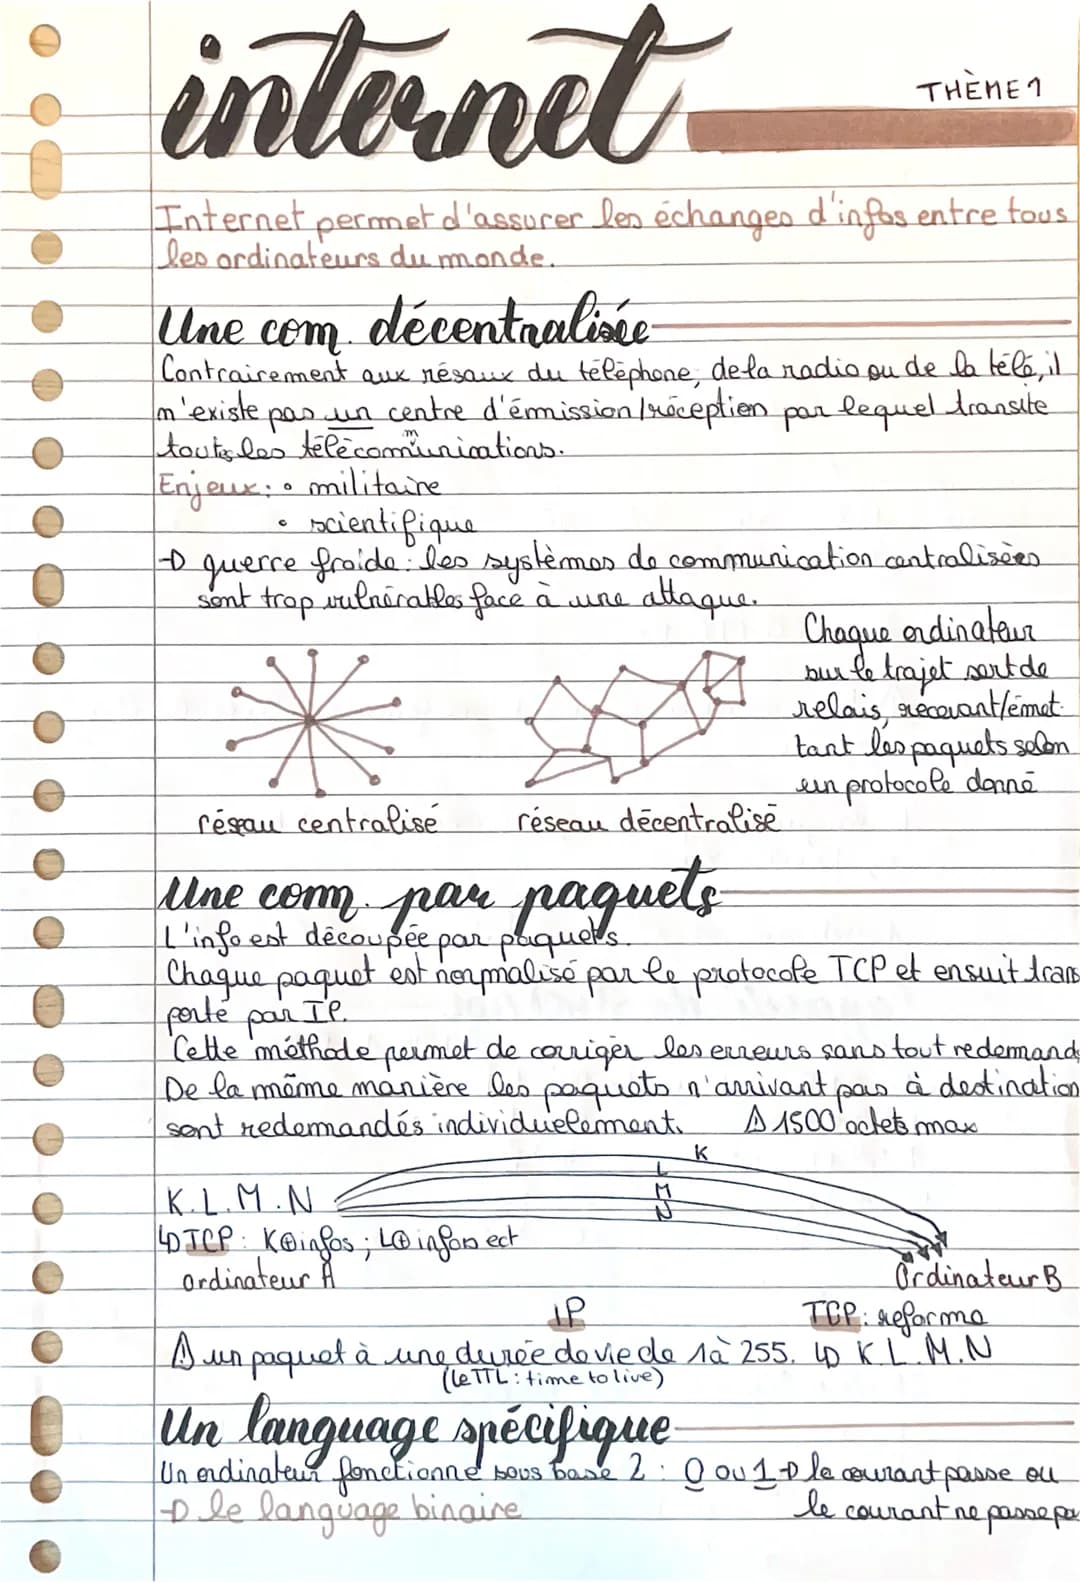 internet
THÈME 1
Internet permet d'assurer les échanges d'infos entre tous
les ordinateurs du monde.
Une com. décentralisée
Contrairement aux résaux du téléphone, de la radio ou de la télé, il
n'existe pas un centre d'émission/réception par lequel transite
toutes les télécommunications.
Enjeux: • militaire
• scientifique
→ guerre froide : les systèmes de communication centralisées
sont trop vulnérables face à une attaque.
Chaque ordinateur
sur le trajet sert de
relais, recevant/émet-
tant les paquets selon
un protocole donné
réseau centralisé
réseau décentralisé
Une com. par paquets
L'info est découpée par paquets.
Chaque paquet est normalisé par le protocole TCP et ensuit trans
porté par IP.
Cette méthode permet de corriger les erreurs sans tout redemand
De la même manière les paquets n'arrivant pas à destination
sont redemandés individuelement. ⚠ 1500 octets max
K
L
M
N
K.L.M.N
↳ TCP : K⊕infos ; L⊕infos ect
ordinateur A
Ordinateur B
IP
TCP : reforme
⚠ un paquet à une durée de vie de 1 à 255. ↳ K.L.M.N
(le TTL : time to live)
Un language spécifique
Un ordinateur fonctionne sous base 2 : 0 ou 1 → le courant passe ou
le courant ne passe pa
→ le language binaire